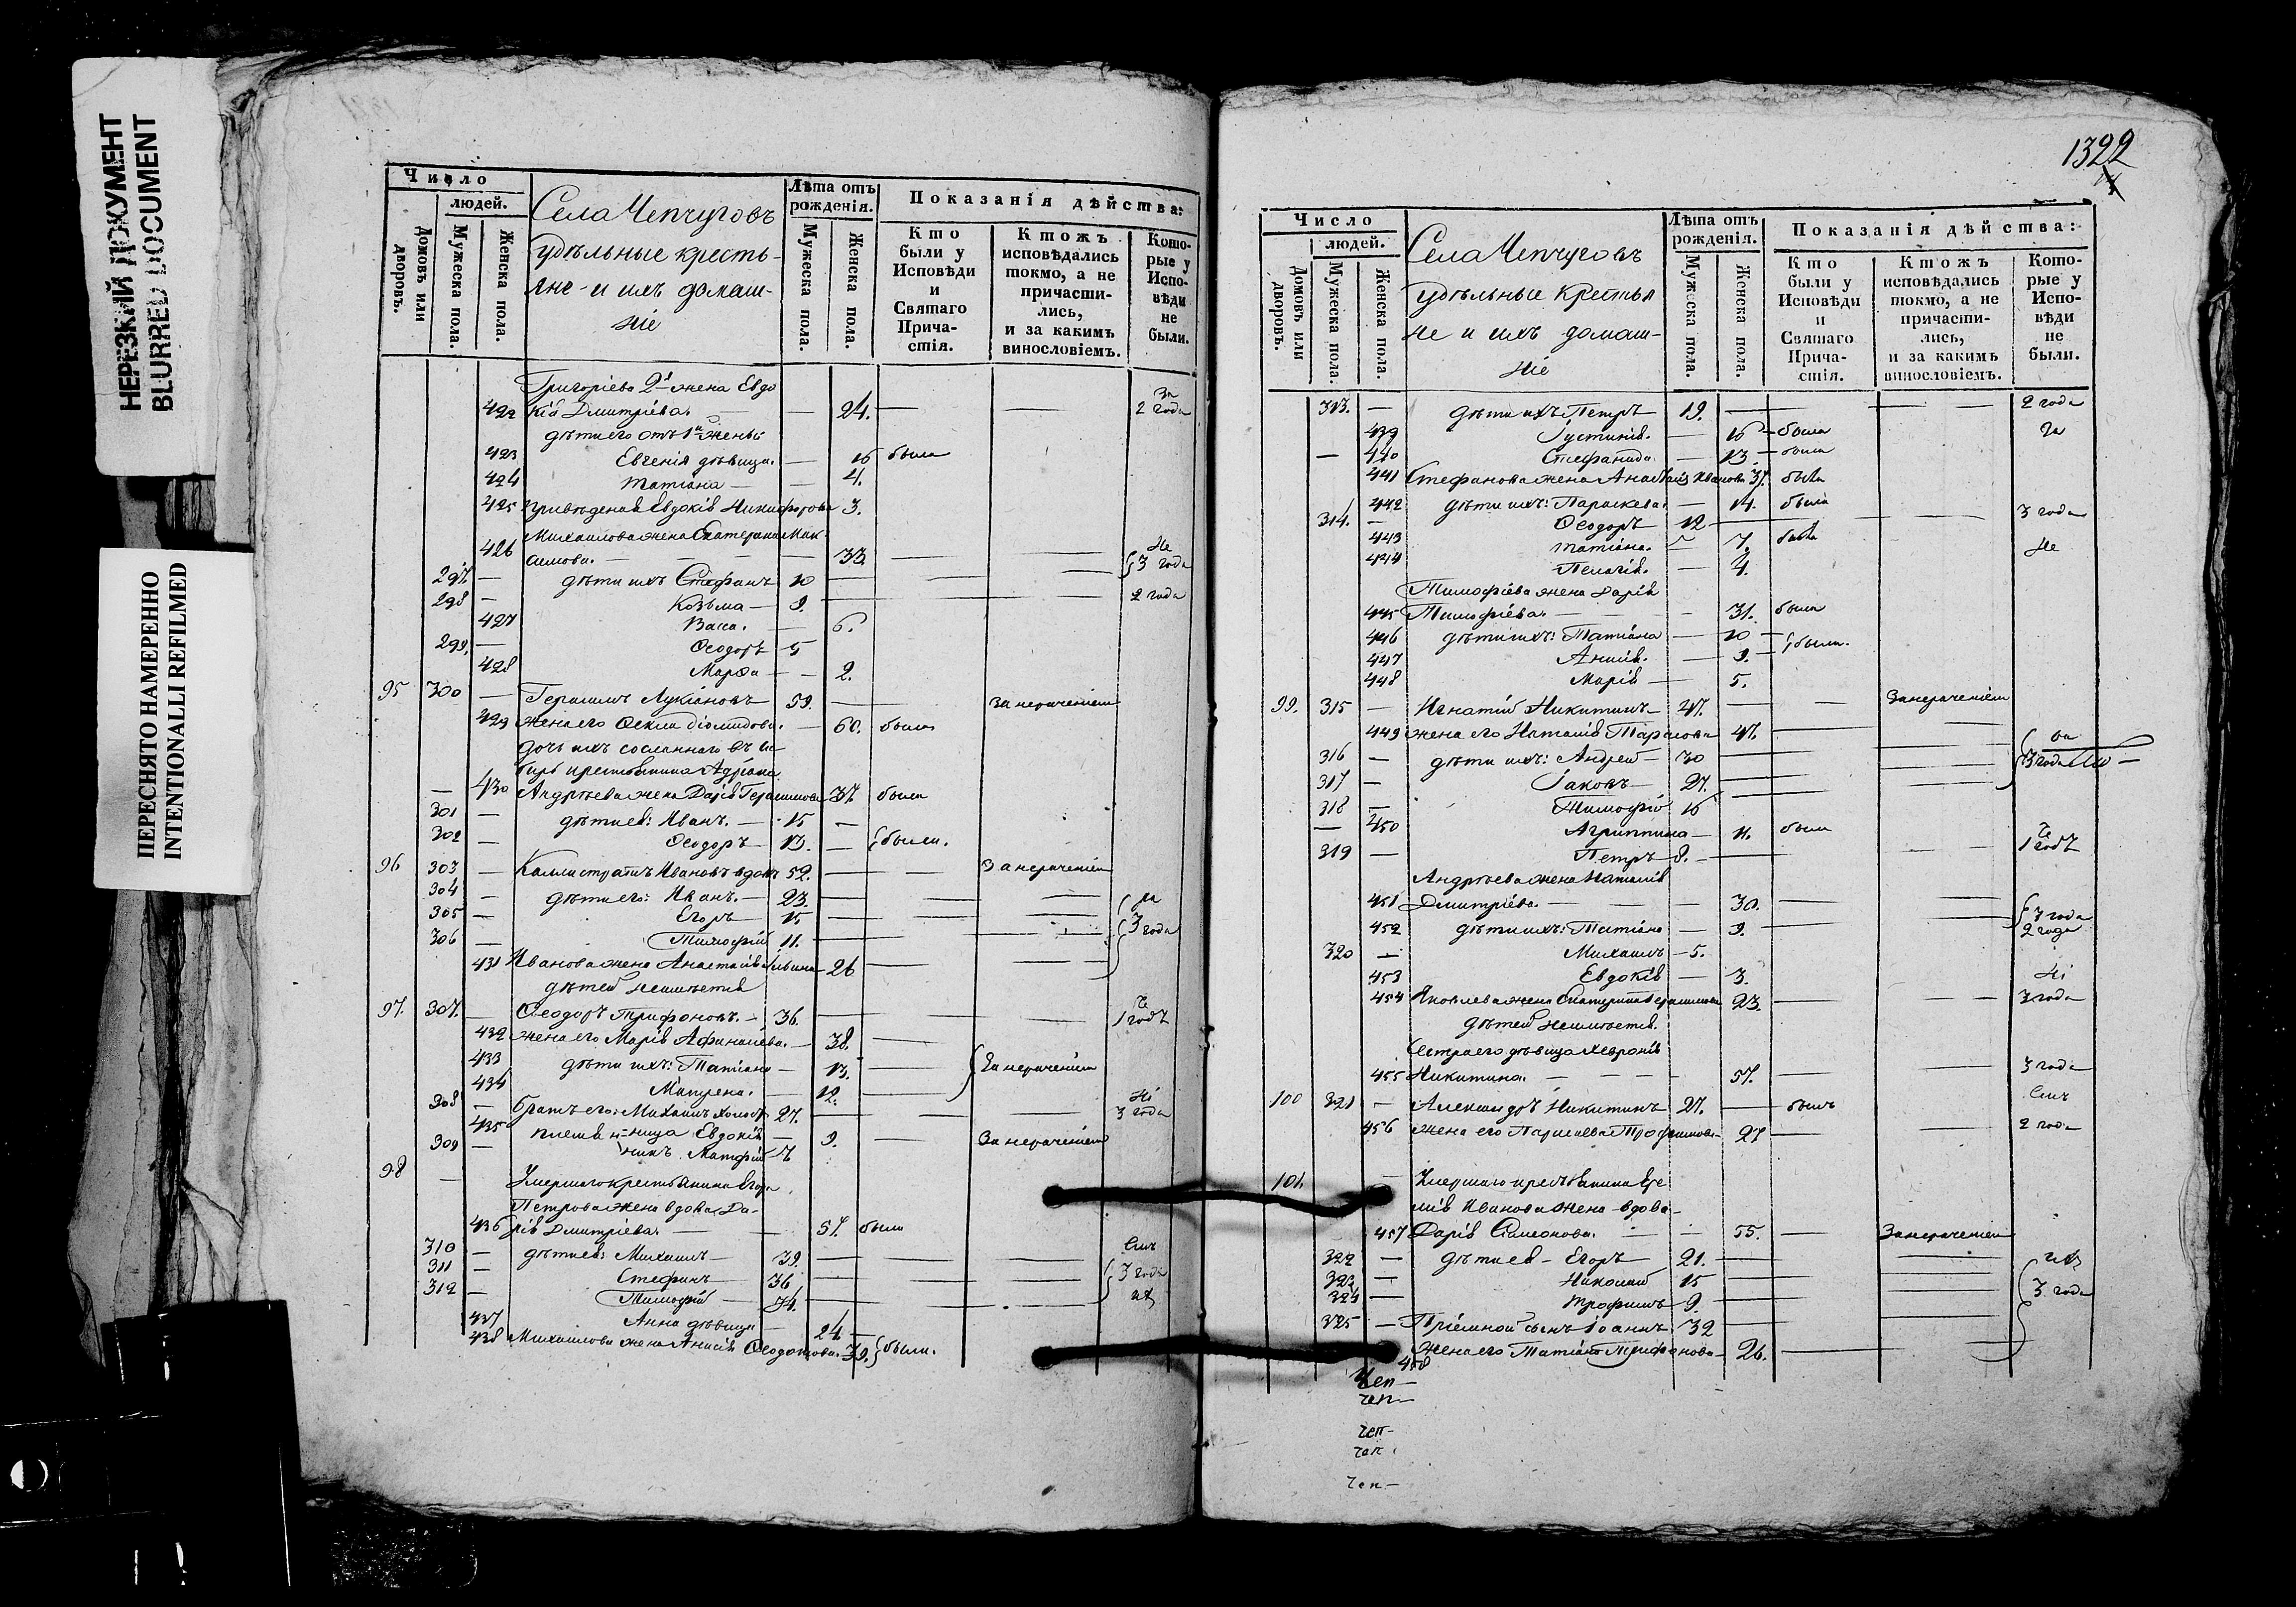 НЕРЕЗКИЙ ДОКУМЕНТ
BLURRED DOCUMENT
ПЕРЕСНЯТО НАМЕРЕННО
INTENTIONALLI REFILMED
Число
людей.
Домовъ или дворовъ.
Мужеска пола.
Женска пола.
Села Чепчуговъ
удѣльные кресть-
яне и ихъ домаш-
ніе
Лѣта отъ рожденія.
Мужеска пола.
Женска пола.
Показанія дѣйства:
Кто были у Исповѣди и Святаго Прича-стія.
Ктожъ исповѣдались токмо, а не причасти-лись, и за какимъ винословіемъ.
Кото-рые у Испо-вѣди не были.
Григоріева 2я жена Евдо
422 кія Дмитріева. — 24. — — 2 года
дѣти его отъ 1й жены
423 Евгенія дѣвица. — 16 была
424 Татіана — 4.
425 Евдокія Никифорова 3.
Михаилова жена Екатерина Мак
426 симова. — 33. — 3 года
297. — дѣти ихъ Стефанъ 10 —
298 — Козьма — 9. — 2 года
427 Васса. — 6.
299. — Ѳеодоръ — 5
428 Марѳа — 2.
95 300 — Герасимъ Лукіановъ 59. — за нераченіемъ
429 жена его Ѳекла Діомидова. — 60. была
дочь ихъ сосланнаго въ Си
бирь крестьянина Адріана
— 430 Андрѣева жена Дарія Герасимова 37. была
301 — дѣти ея: Иванъ. — 15 —
302 — Ѳеодоръ — 13. — были.
96 303 — Каллистратъ Ивановъ вдовъ 52. — За нераченіемъ
304 — дѣти его: Иванъ. — 23. —
305 — Егоръ — 15 — 3 года
306 — Тимофій 11. —
431 Иванова жена Анастасія Ильина 26 —
дѣтей неимѣетъ
97. 307. — Ѳеодоръ Трифоновъ. — 36. — 1 годъ
432 жена его Марія Афанасіева. — 38. —
433 дѣти ихъ: Татіана — 13. — За нераченіемъ
434 Матрена. — 12. —
308 — братъ его: Михаилъ холостъ 27. — 3 года
435 племян-ница Евдокія — 9. — За нераченіемъ
309 — никъ Матфій — 7
98 — Умершаго крестьянина Егора
Петрова жена вдова Да-
436 рія Дмитріева. — 57. была
310 — дѣти ея: Михаилъ — 39. —
311 — Стефанъ — 36 — 3 года
312 — Тимофій — 34. —
437 Анна дѣвица — 24 —
438 Михаилова жена Анисія Ѳеодотова. 39. были.
1322
Число
людей.
Домовъ или дворовъ.
Мужеска пола.
Женска пола.
Села Чепчуговъ
удѣльные крестья
не и ихъ домаш-
ніе
Лѣта отъ рожденія.
Мужеска пола.
Женска пола.
Показанія дѣйства:
Кто были у Исповѣди и Святаго Прича-стія.
Ктожъ исповѣдались токмо, а не причасти-лись, и за какимъ винословіемъ.
Кото-рые у Испо-вѣди не были.
313. — дѣти ихъ Петръ 19. — 2 года
439 Іустинія. — 16 — была
— 440 Стефанида. — 13. — была
441 Стефанова жена Анастасія Иванова 37. была
442 дѣти ихъ: Параскева. — 14. была
314. — Ѳеодоръ — 12 — 3 года
443 Татіана. — 7. была
444 Пелагія. — 4.
Тимофіева жена Дарія
445 Тимофіева. — 31. была
446 дѣти ихъ: Татіана — 10 — были.
447 Анисія. — 9. —
448 Марія — 5.
99. 315 — Игнатій Никитинъ — 47. — За нераченіемъ
449 жена его Наталія Тарасова 47. —
316 — дѣти ихъ: Андрей — 30 — 3 года
317 — Іаковъ — 27. —
318 — Тимофій 16 —
— 450 Агриппина — 11. была
319 — Петръ — 8. — 1 годъ
Андрѣева жена Наталія
451 Дмитріева. — 30. —
452 дѣти ихъ: Татіана — 9. — 3 года
320 — Михаилъ — 5. 2 года
453 Евдокія — 3.
454 Яковлева жена Екатерина Герасимова 23. — 3 года
дѣтей неимѣетъ.
Сестра его дѣвица Хевронія
455 Никитина. — 57. — 3 года
100 321 — Александръ Никитинъ 27. — былъ
456 жена его Парасковья Трофимова — 27 — 2 года
101. — Умершаго крестьянина Ере
мія Иванова жена вдова —
457 Дарія Симеонова. — 55. — За нераченіемъ
322 — дѣти ея — Егоръ — 21. —
323 — Николай 15 — 3 года
324 — Трофимъ 9. —
325 — Пріемной сынъ Іоаннъ 32 —
458 жена его Татіана Трифонова — 26. —
Чеп —
чеп —
чеп —
чеп
Чеп —